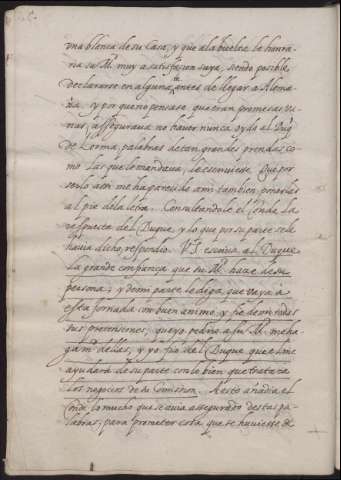 una blanca de su Casa, y que a la buelta le honra
ria su M.d muy a satisfacion suya, siendo posible
declararse en alguna antes de llegar a Alema
ña, y por que no pensase que eran promesas va
nas, assegurava no haver nunca oydo al Duq
de Lerma, palabras de tan grandes prendas, co
mo las que lo mandava le escriviese. Que por
serlo assi me ha parecido a mi tambien ponerlas
al pie de la letra. Consultandole el Conde la
respuesta del Duque, y lo que por su parte se le
havia dicho, respondio. V.S. escriva al Duque
la grande confiança que su M.d haze de su
persona; y de mi parte le diga, que vaya a
esta jornada con buen animo, y fie de mi todas
sus pretensiones, que yo pedire a su M.d me ha
ga md. dellas, y yo fio del Duque que a el me
ayudara de su parte con lo bien que tratara
los negocios de su Comission. A esto añadia el
Conde lo mucho que se avia assegurado destas pa
labras, para prometer esta, que se huviesse de